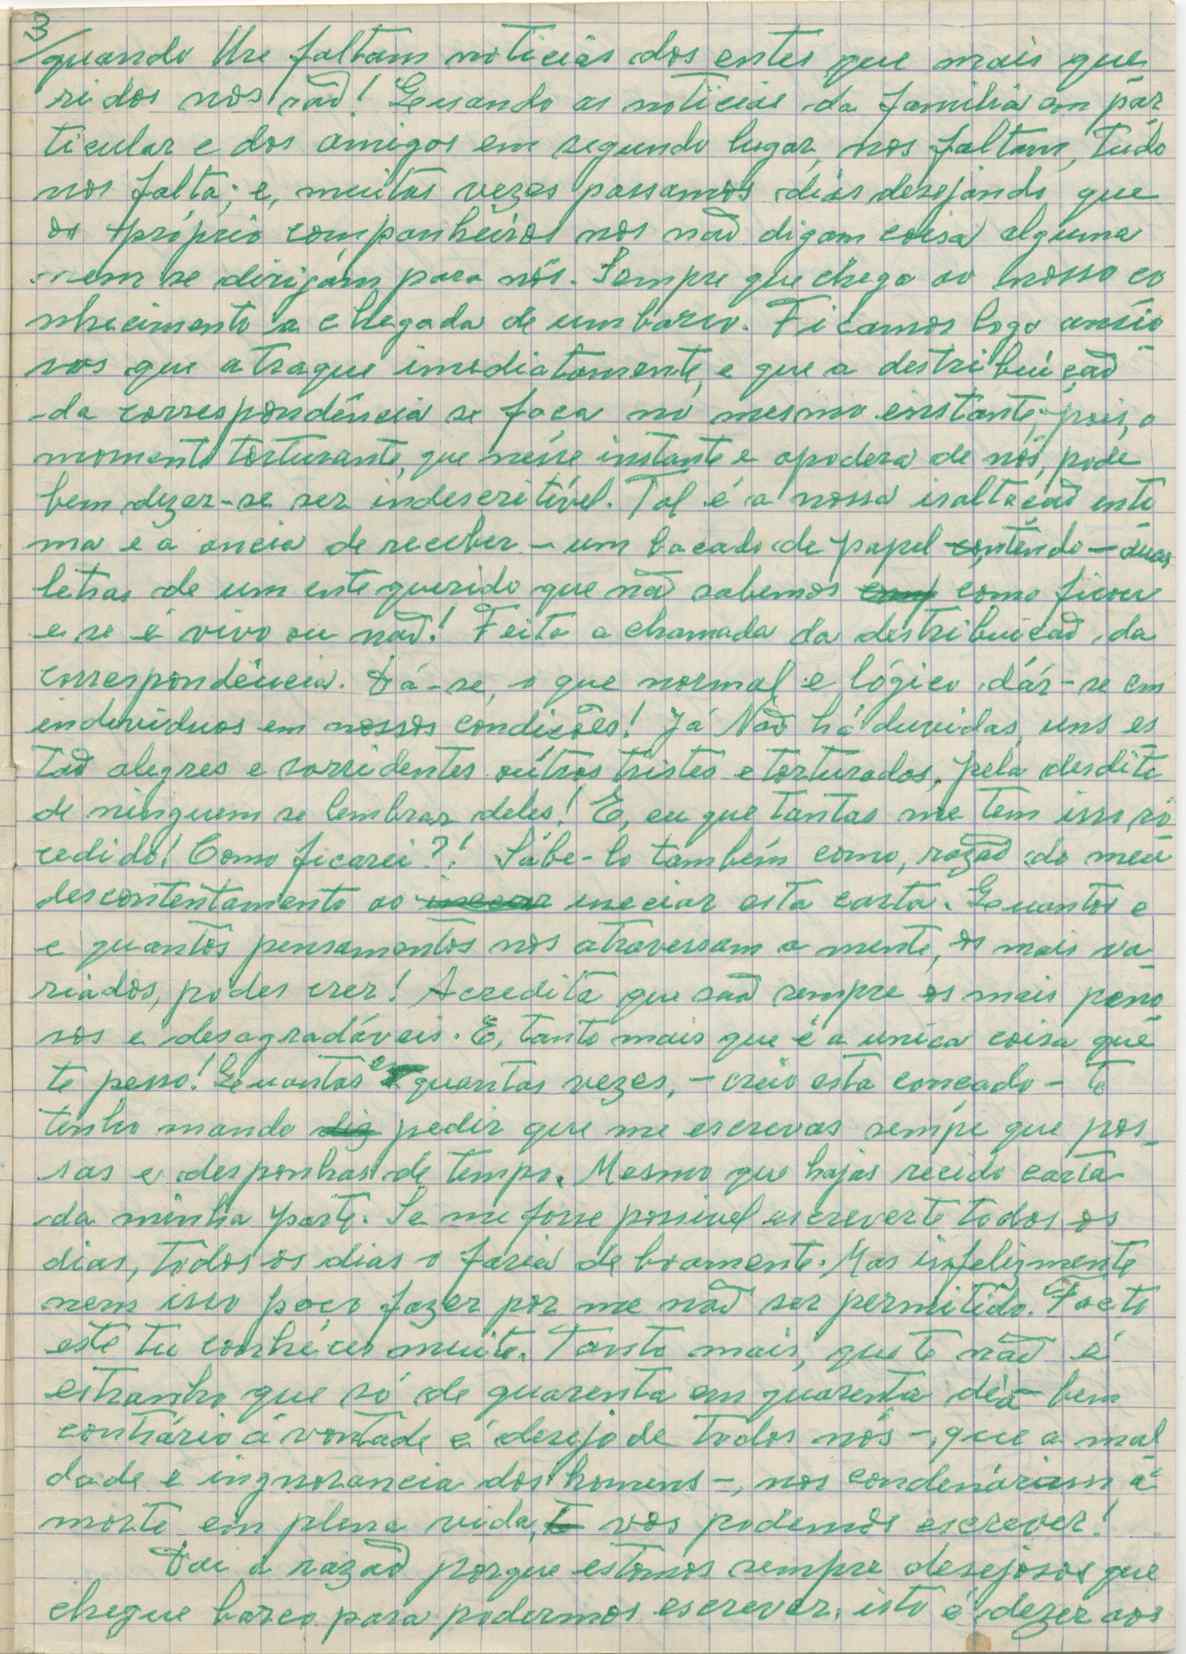 3
quando lhe faltam noticias dos entes que mais que
ridos nos são! Quando as noticias da familia em par
ticular e dos amigos em segundo lugar, nos faltam, tudo
nos falta; e, muitas vezes passamos dias desejando que
os próprio companheiros nos não digam coisa alguma
nem se dirijam para nós. Sempre que chega ao nosso co
nhecimento a chegada de um barco. Ficamos logo ancio
sos que atraque imediatamente, e que a destribuição
da correspondência se faça no mesmo instante, pois, o
momento torturante, que nesse instante e apodera de nós, pode
bem dizer-se ser indescritível. Tal é a nossa isaltação inti
ma e a ancia de receber – um bocado de papel contendo – duas
letras de um ente querido que não sabemos como ficou
e se é vivo ou não! Feita a chamada da destribuição da
correspondência. Dá-se, o que normal e lógico dár-se em
individuos em nossos condições! Já Não há duvidas, uns es
tão alegres e sorridentes outros tristes e torturados, pela desdita
de ninguem se lembrar deles! E, eu que tantas me tem isso su
cedido! Como ficarei?! Sábe-lo também como, razão do meu
descontentamento ao ineciar esta carta. Quantos e
e quantos pensamentos nos atravessam a mente, os mais va
riados, podes crer! Acredita que são sempre os mais peno
sos e desagradáveis. E, tanto mais que é a unica coisa que
te pesso! Quantas e quantas vezes, – creio esta conçado – te
tenho mando pedir que me escrevas sempe que pos
sas e desponhas de tempo. Mesmo que hajas recido carta
da minha parte. Se me fosse possivel escreverte todos os
dias, todos os dias o faria de boamente. Mas infelizmente
nem isso poço fazer por me não ser permitido. Facto
este tu conheces muito. Tanto mais, que te não é
estranho que só de quarenta em quarenta dia – bem
contrário á vontade e desejo de todos nós –, que a mal
dade e ingnorancia dos homens –, nos condenáriam á
morte em plena vida, vos podemos escrever!
Daí a razão porque estamos sempre desejosos que
chegue barco para podermos escrever, isto é dezer aos